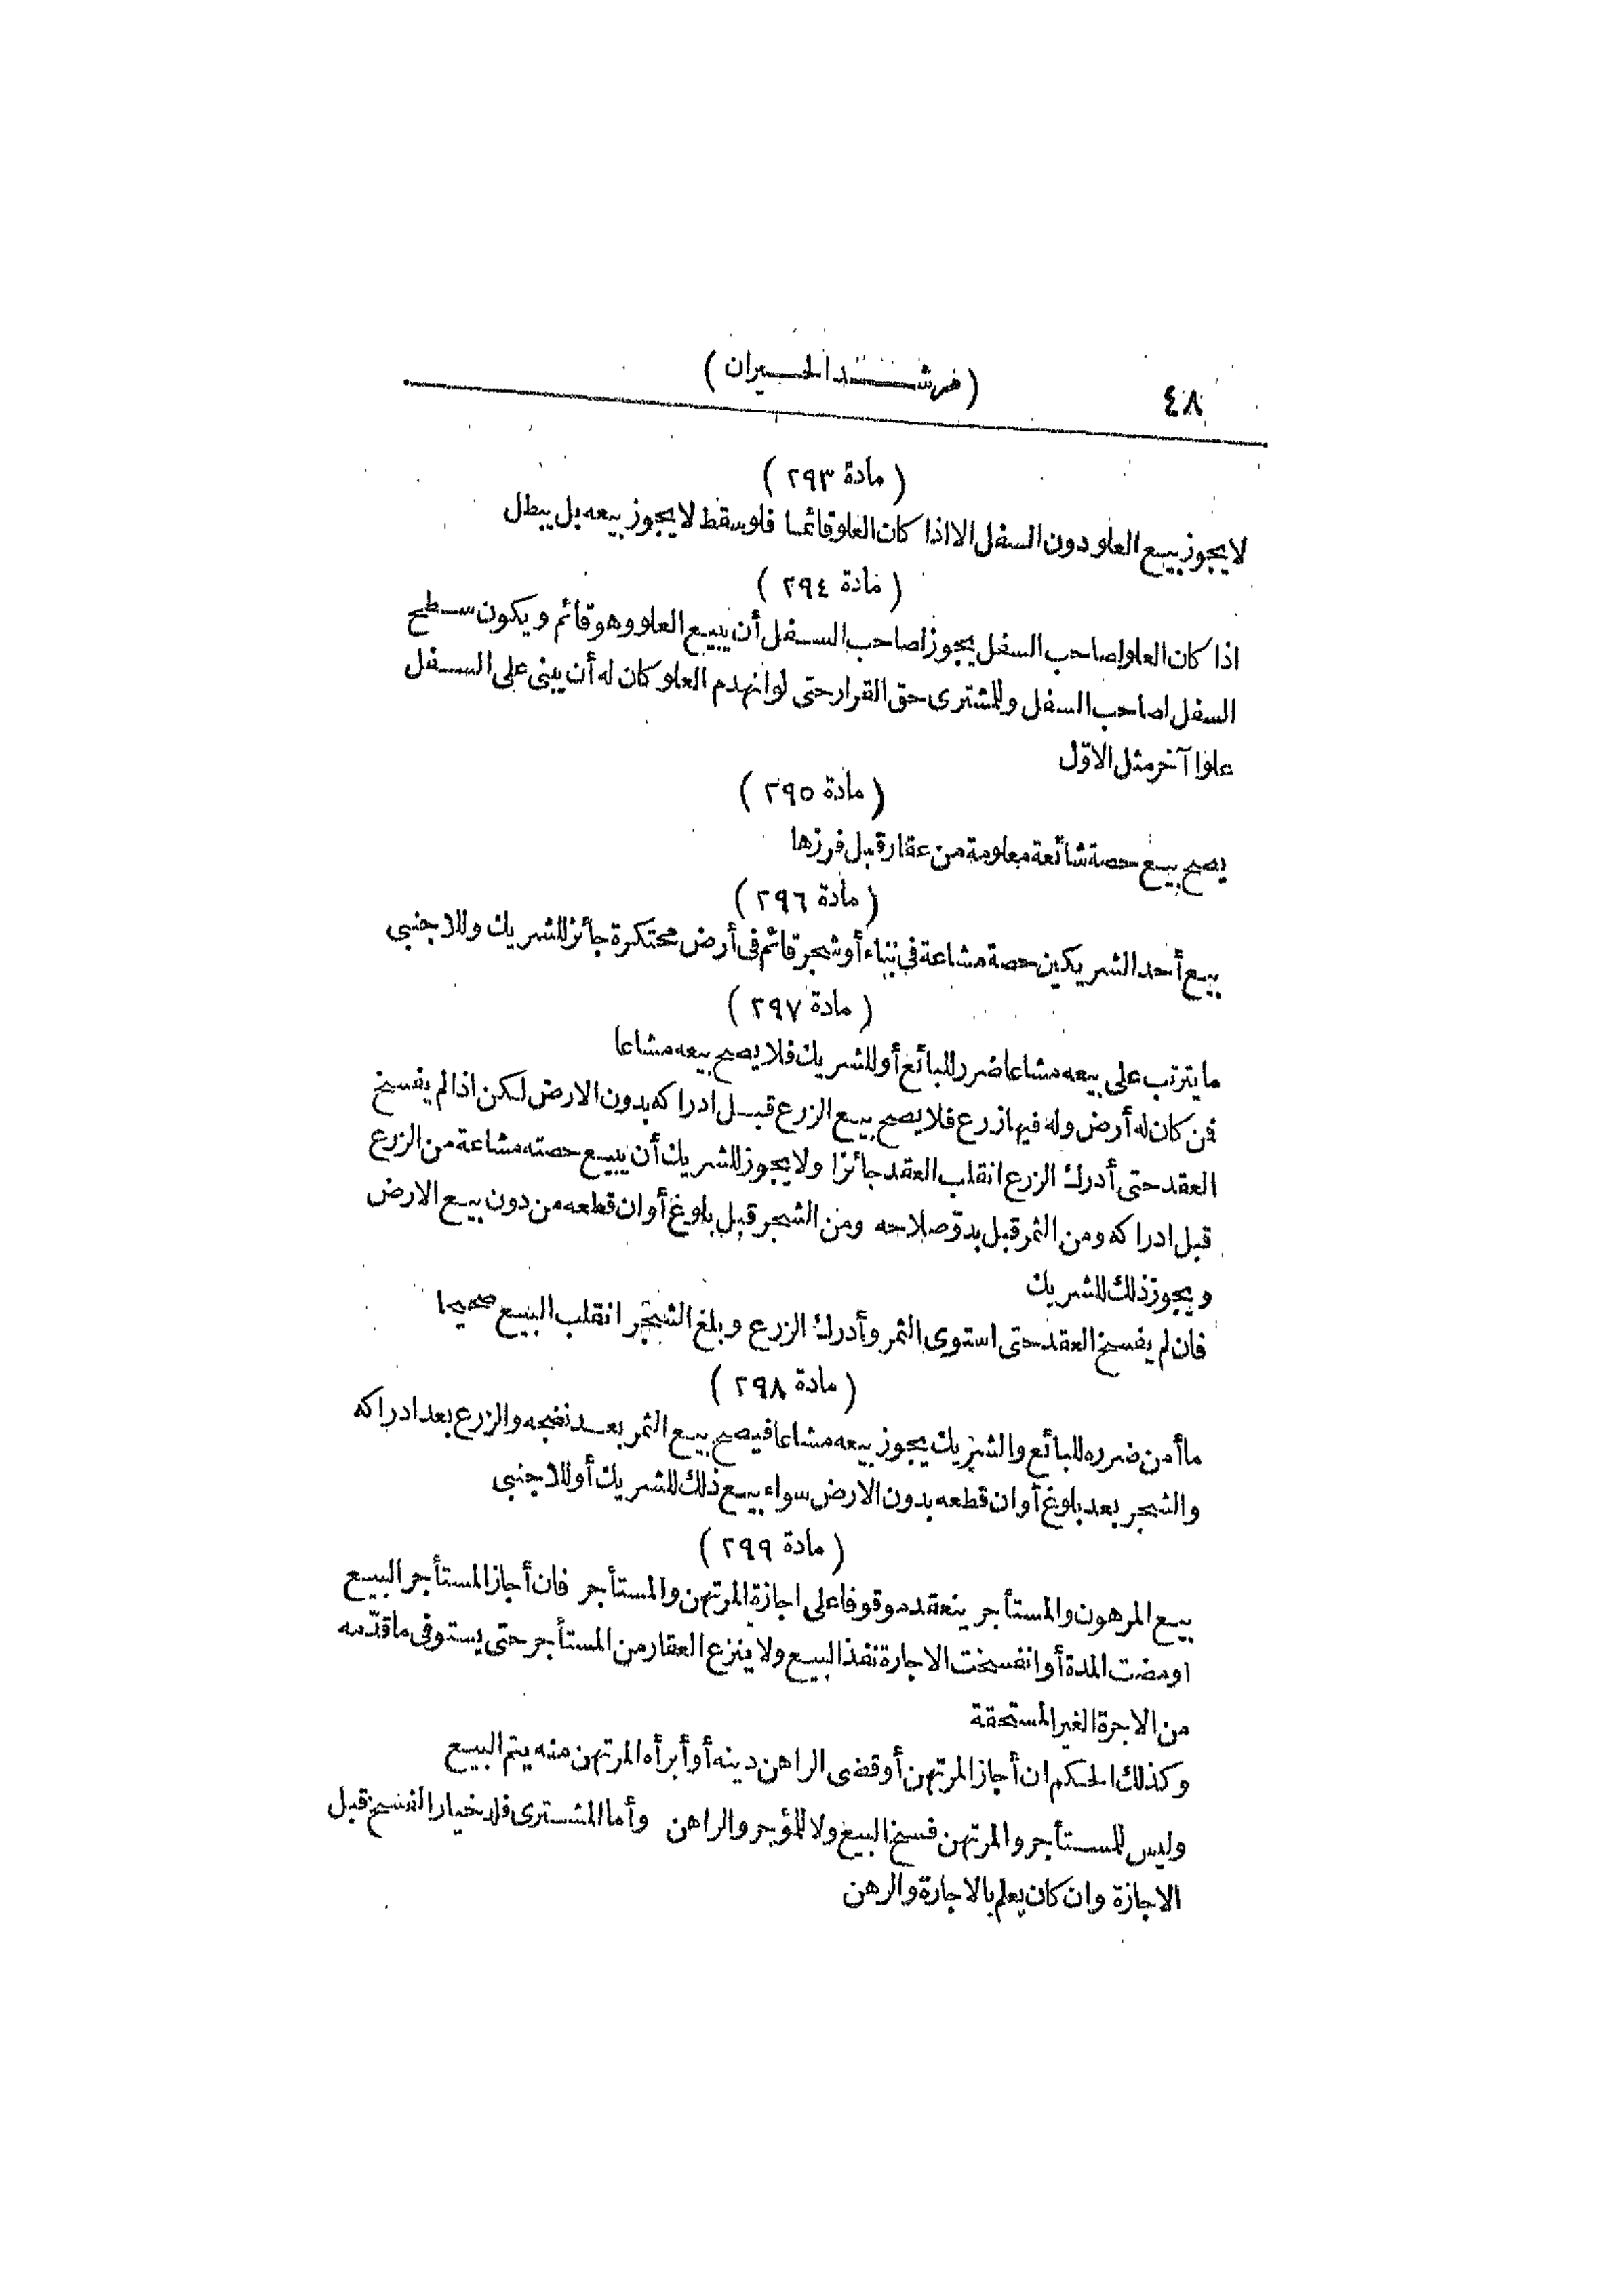 ٤٨
(مرشد الحيران)
(مادة ٢٩٣)
لا يجوز بيع العلو دون السفل الا اذا كان العلو قائما فلو سقط لا يجوز بيعه بل يبطل
(مادة ٢٩٤)
اذا كان العلو لصاحب السفل يجوز لصاحب السفل أن يبيع العلو وهو قائم ويكون سطح
السفل لصاحب السفل وللمشترى حق القرار حتى لو انهدم العلو كان له أن يبنى على السفل
علوا آخر مثل الاوّل
(مادة ٢٩٥)
يصح بيع حصة شائعة معلومة من عقار قبل فرزها
(مادة ٢٩٦)
بيع أحد الشريكين حصة مشاعة فى بناء أو شجر قائم فى أرض محتكرة جائز للشريك وللاجنبى
(مادة ٢٩٧)
ما يترتب على بيعه مشاعا ضرر للبائع أو للشريك فلا يصح بيعه مشاعا
فمن كان له أرض وله فيها زرع فلا يصح بيع الزرع قبل ادراكه بدون الارض لكن اذا لم يفسخ
العقد حتى أدرك الزرع انقلب العقد جائزا ولا يجوز للشريك أن يبيع حصته مشاعة من الزرع
قبل ادراكه ومن الثمر قبل بدوّ صلاحه ومن الشجر قبل بلوغ أوان قطعه من دون بيع الارض
ويجوز ذلك للشريك
فان لم يفسخ العقد حتى استوى الثمر وأدرك الزرع وبلغ الشجر انقلب البيع صحيحا
(مادة ٢٩٨)
ما أمن ضرره للبائع والشريك يجوز بيعه مشاعا فيصح بيع الثمر بعد نضجه والزرع بعد ادراكه
والشجر بعد بلوغ أوان قطعه بدون الارض سواء بيع ذلك للشريك أو للاجنبى
(مادة ٢٩٩)
بيع المرهون والمستأجر ينعقد موقوفا على اجازة المرتهن والمستأجر فان أجاز المستأجر البيع
او مضت المدة أو انفسخت الاجارة نفذ البيع ولا ينزع العقار من المستأجر حتى يستوفى ما قدّمه
من الاجرة الغير المستحقة
وكذلك الحكم ان أجاز المرتهن أو قضى الراهن دينه أو أبرأه المرتهن منه يتم البيع
وليس للمستأجر والمرتهن فسخ البيع ولا للمؤجر والراهن وأما المشترى فله خيار الفسخ قبل
الاجازة وان كان يعلم بالاجارة والرهن